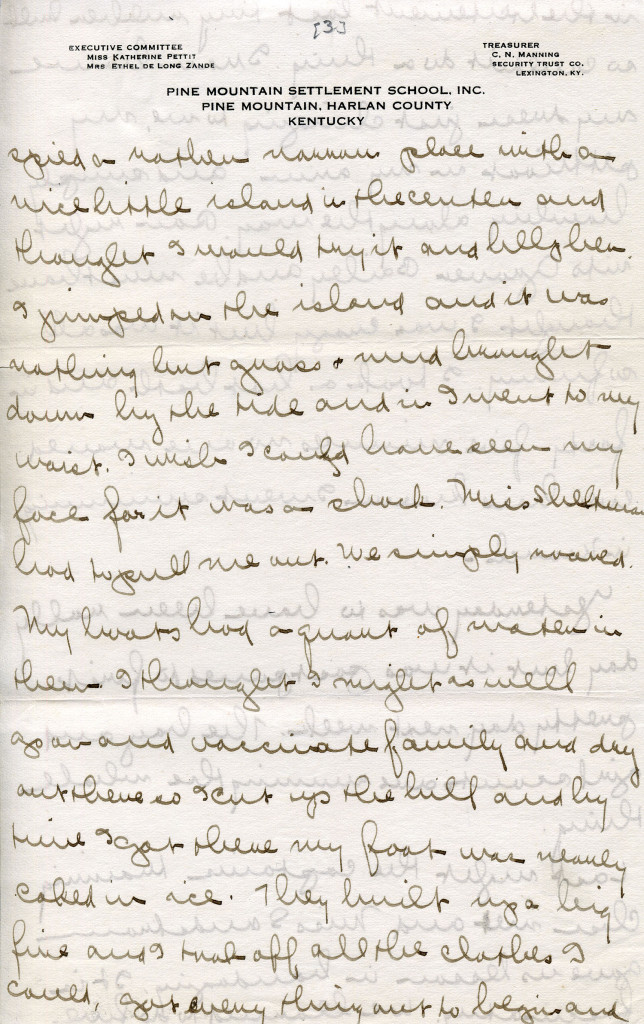 [3]
EXECUTIVE COMMITTEE
MISS KATHERINE PETTIT
MRS ETHEL DE LONG ZANDE
TREASURER
C. N. MANNING
SECURITY TRUST CO.
LEXINGTON, KY.
PINE MOUNTAIN SETTLEMENT SCHOOL, INC.
PINE MOUNTAIN, HARLAN COUNTY
KENTUCKY
spied a rather narrow place with a
nice little island in the center and
thought I would try it and
I jumped on the island and it was
nothing but grass & mud brought
down by the tide and in I went to my
waist. I wish I could have seen my
face for it was a shock. Miss
had to pull me out. We simply roared.
My boots had a quart of water in
them. I thought I might as well
go on and vaccinate family and dry
out there so I cut up the hill and by
time I got there my foot was nearly
caked in ice. They built up a big
fire and I took off all the clothes I
could, got every thing out to begin and